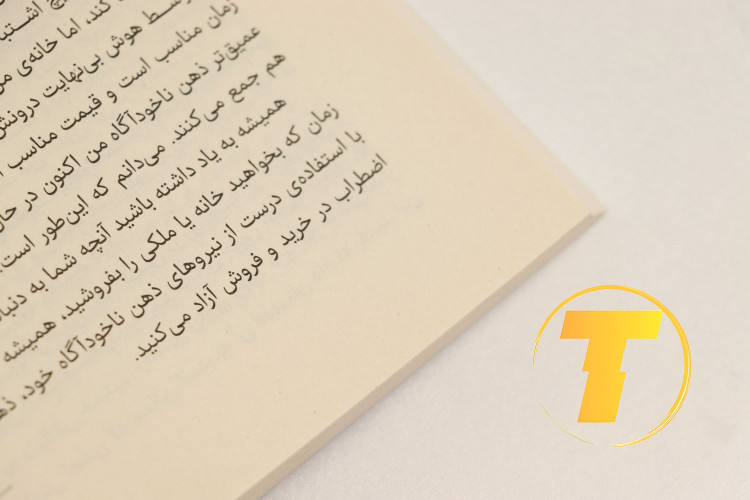 کند، اما خانه‌ی من
هوش بی‌نهایت درونش
زمان مناسب است و قیمت مناسب
عمیق‌تر ذهن ناخودآگاه من اکنون در
هم جمع می‌کنند. می‌دانم که این‌طور است.
همیشه به یاد داشته باشید آنچه شما به
زمان که بخواهید خانه یا ملکی را بفروشید، همیشه
با استفاده‌ی درست از نیروهای ذهن ناخودآگاه خود،
اضطراب در خرید و فروش آزاد می‌کنید.
T